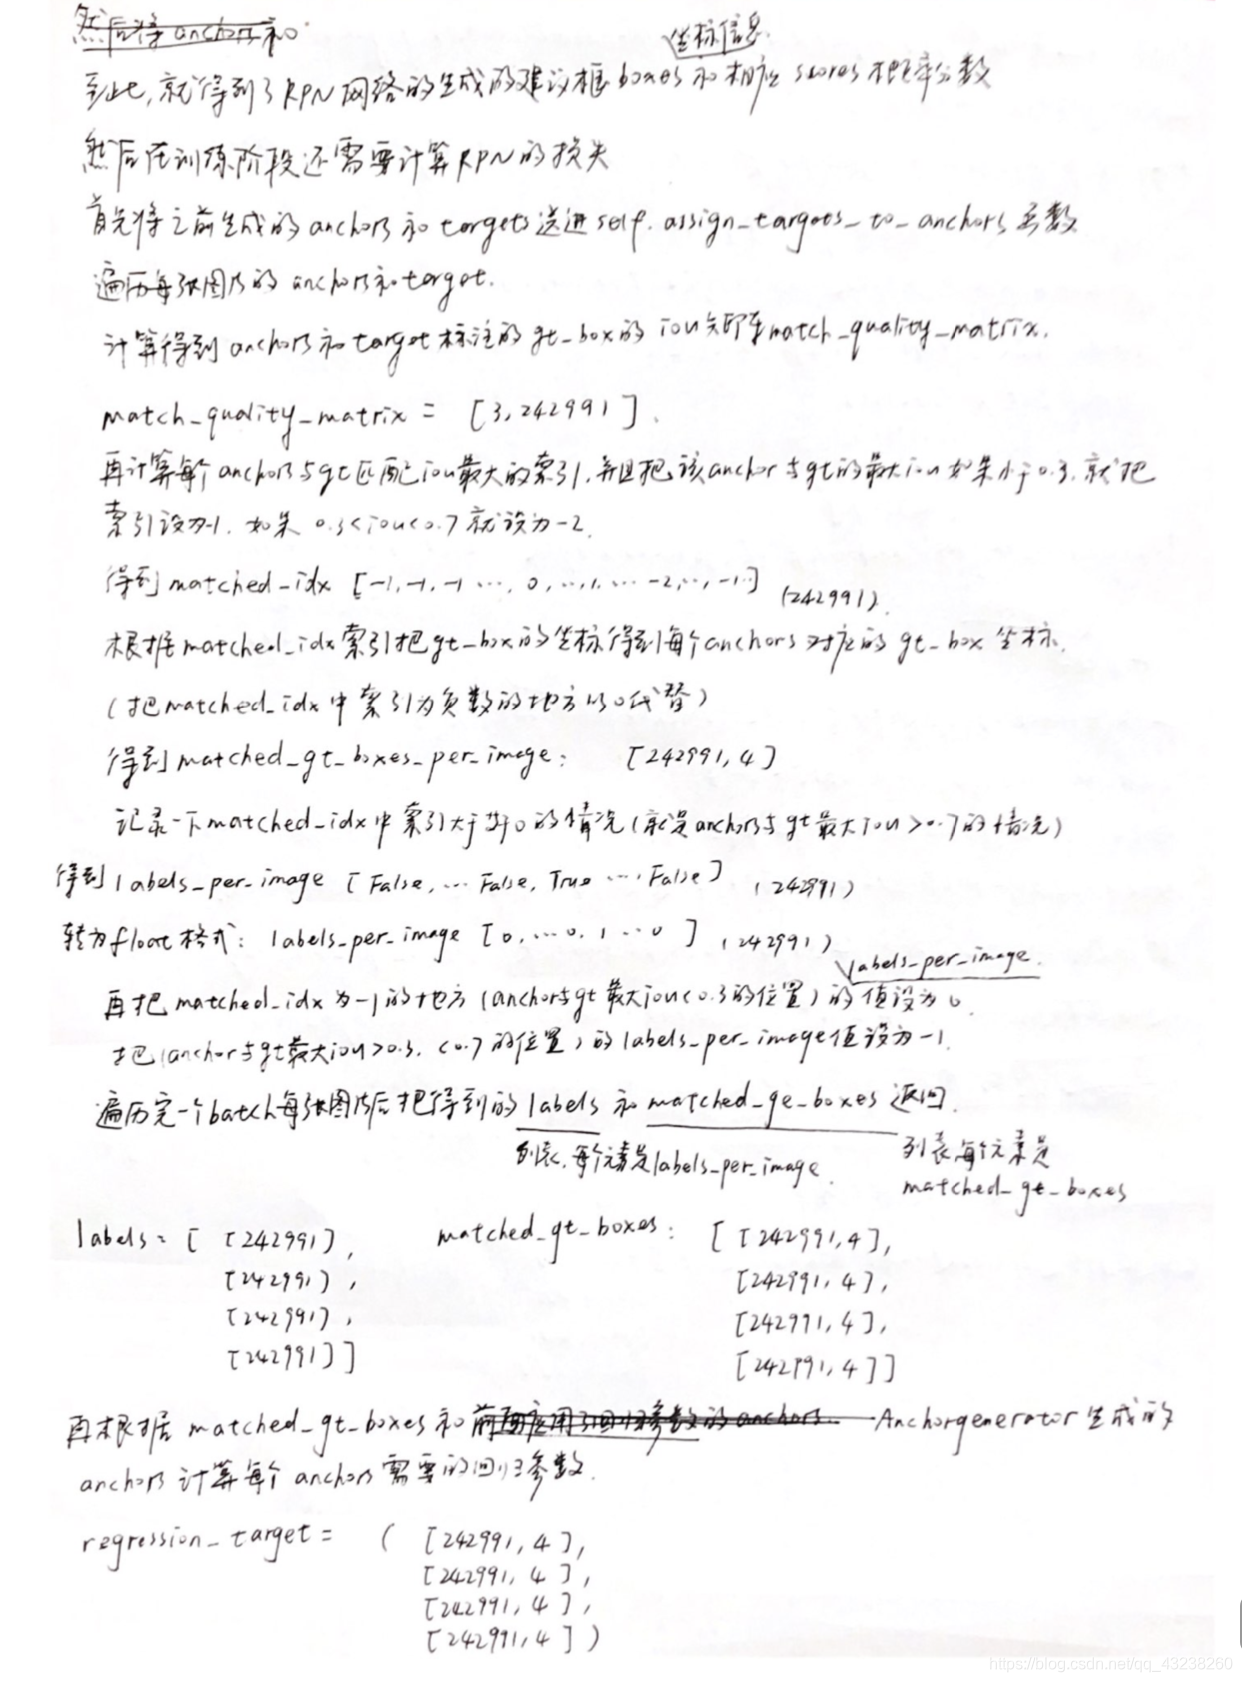 然后将anchors和
坐标信息
至此,就得到了RPN网络的生成的建议框boxes和相应scores概率分数
然后在训练阶段还需要计算RPN的损失
首先将之前生成的anchors和targets送进self.assign_targets_to_anchors函数
遍历每张图片的anchors和target.
计算得到anchors和target标注的gt_box的iou矩阵match_quality_matrix.
match_quality_matrix = [3,242991].
再计算每个anchors与gt匹配iou最大的索引,并且把该anchor与gt的最大iou如果小于0.3,就把
索引设为-1. 如果 0.3<iou<0.7就设为-2.
得到matched_idx [-1,-1,-1 ..., 0, ...,1, ... -2, .., -1..] (242991).
根据matched_idx索引把gt_box的坐标得到每个anchors对应的gt_box坐标.
(把matched_idx中索引为负数的地方以0代替)
得到matched_gt_boxes_per_image: [242991,4]
记录一下matched_idx中索引大于等于0的情况(就是anchors与gt最大iou>0.7的情况)
得到labels_per_image [False, ... False, True ..., False] (242991)
转为float格式: labels_per_image [0, ... 0, 1 ... 0 ] (242991)
labels_per_image.
再把matched_idx为-1的地方(anchor与gt最大iou<0.3的位置)的值设为0
把(anchor与gt最大iou>0.3. <0.7的位置)的labels_per_image值设为-1.
遍历完一个batch每张图片后把得到的labels和matched_ge_boxes返回.
列表,每个元素是labels_per_image.
列表每个元素是
matched_gt_boxes
labels = [ [242991],
[242991],
[242991],
[242991]]
matched_gt_boxes: [ [242991,4],
[242991,4],
[242991,4],
[242991,4]]
再根据matched_gt_boxes和前面应用了回归参数的anchors Anchorgenerator生成的
anchors计算每个anchors需要的回归参数.
regression_target = ( [242991,4],
[242991,4],
[242991,4],
[242991,4])
https://blog.csdn.net/qq_43238260